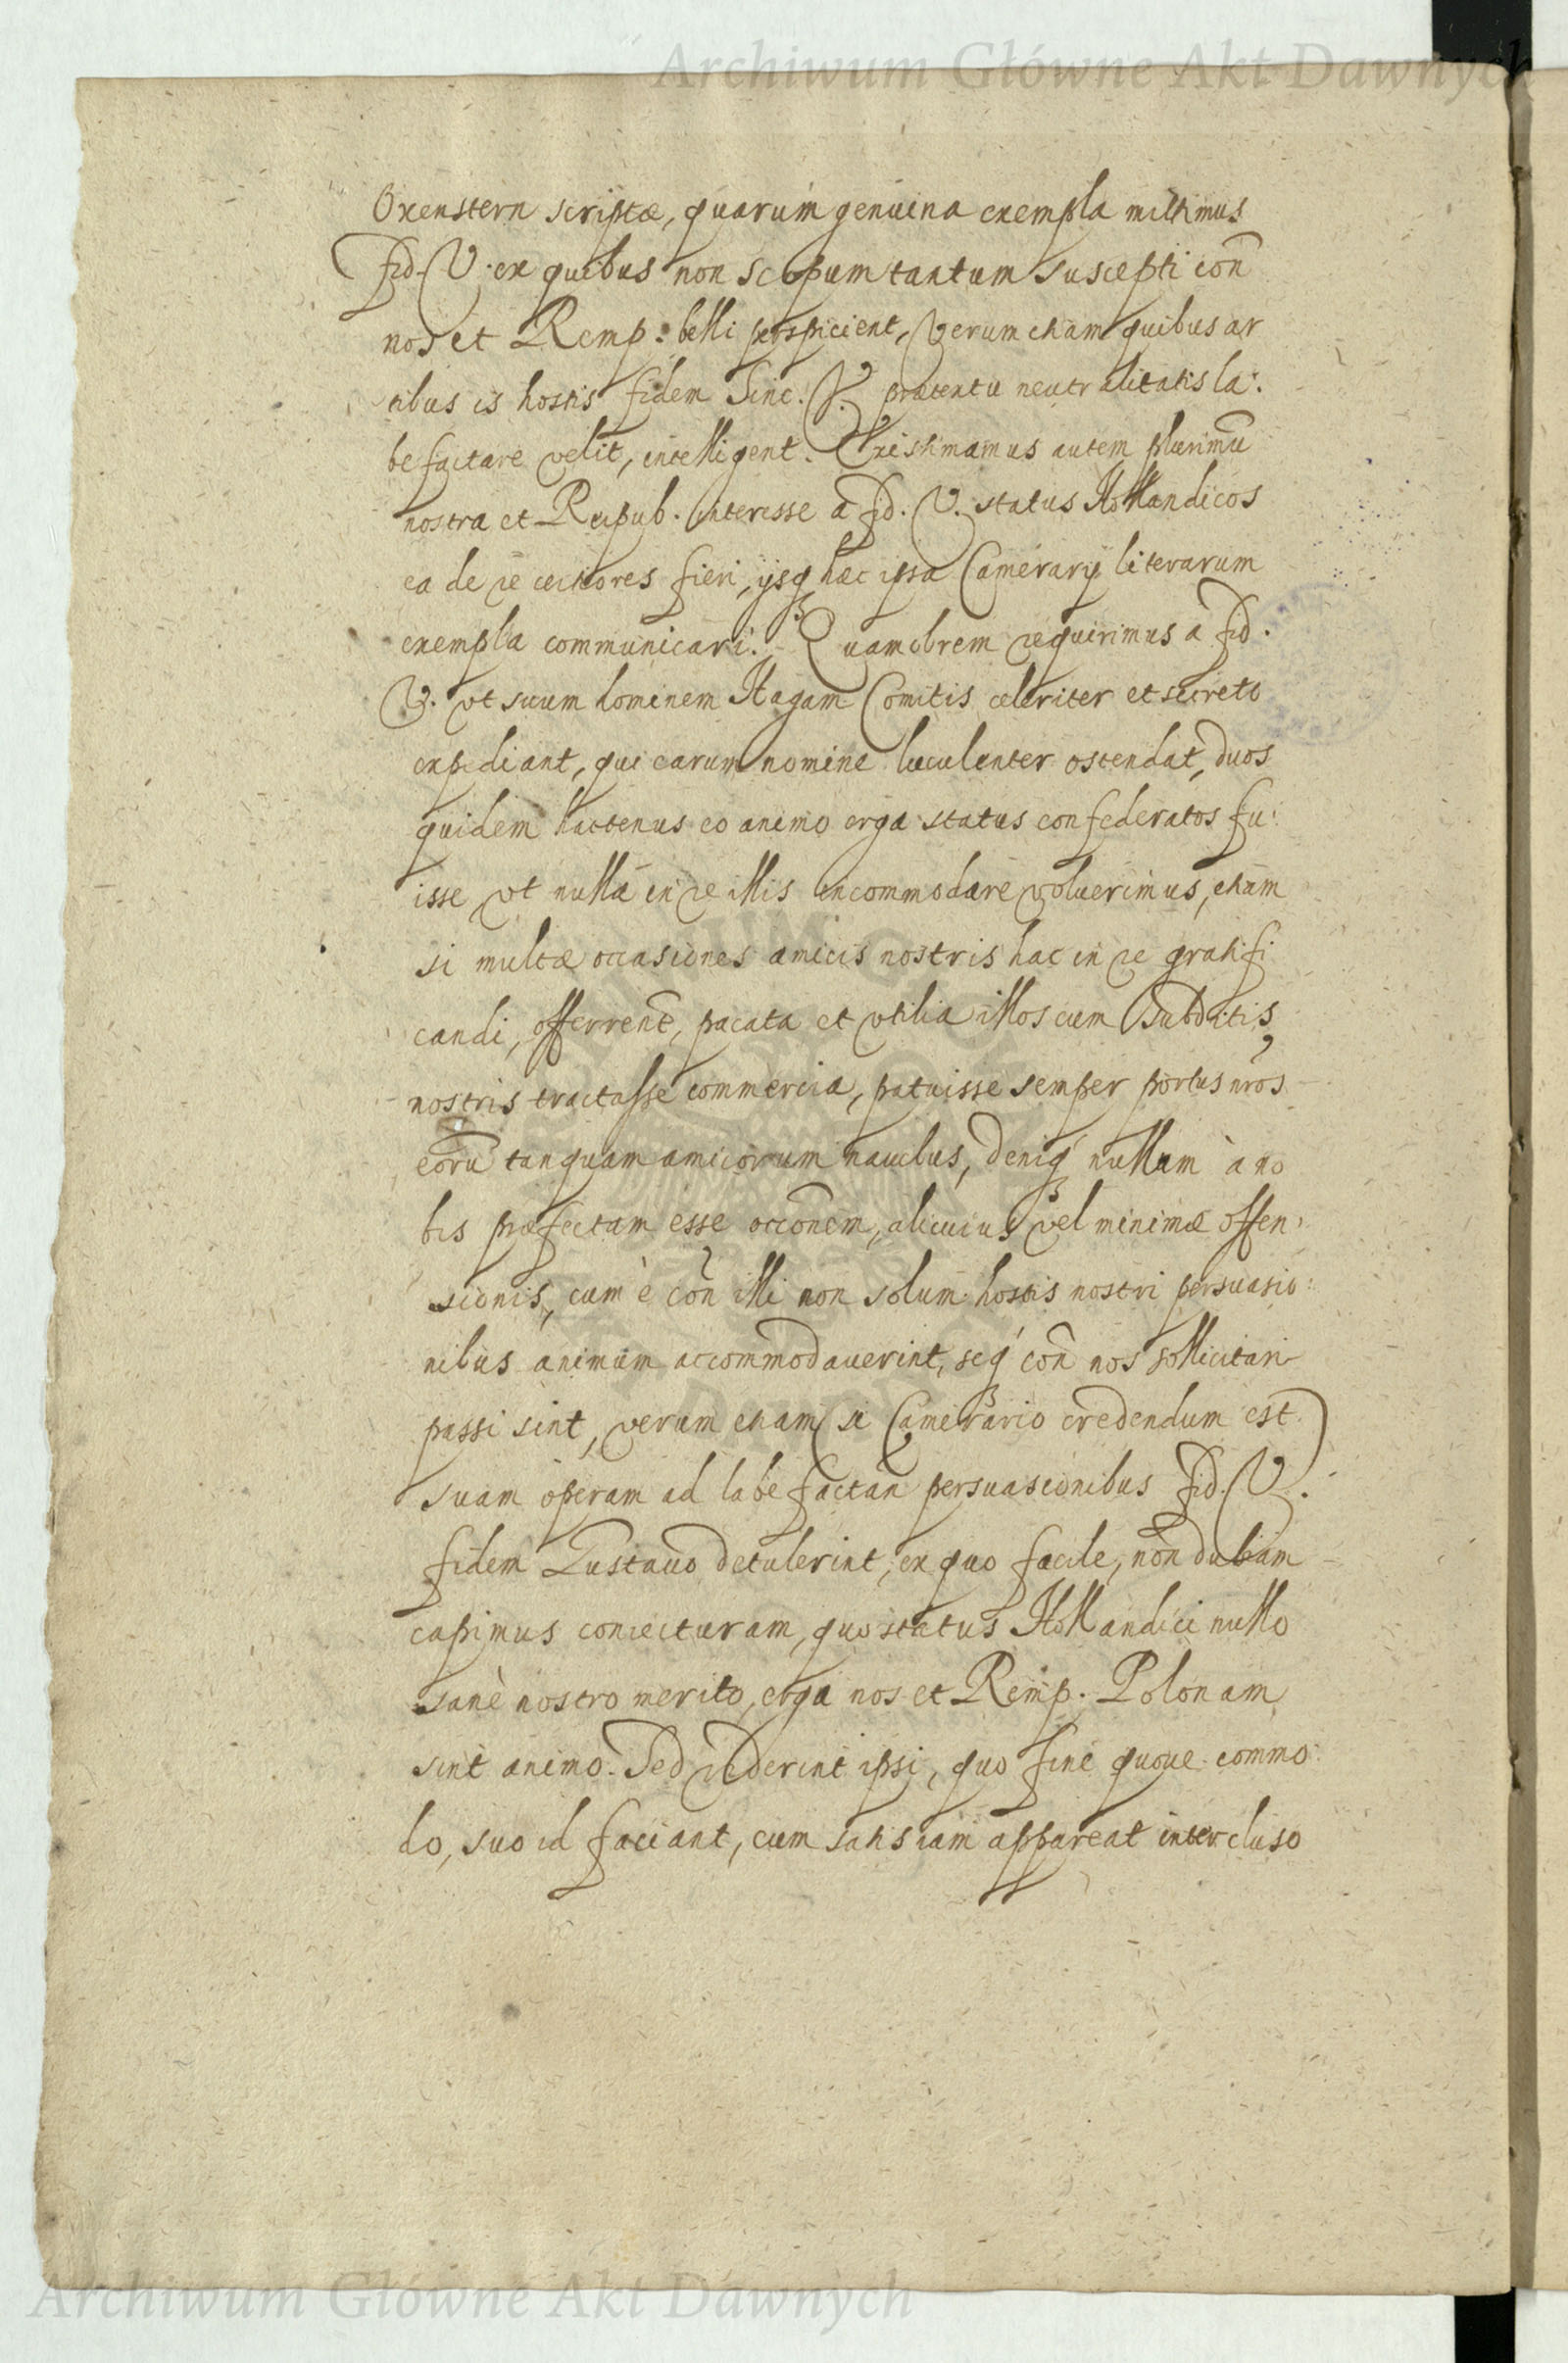 Archiwum Główne Akt Dawnych
Oxenstern scriptæ, quarum genuina exempla mittimus
Fid. V. ex quibus non scopum tantum suscepti con̄
nos et Remp: belli perspicient, verum etiam quibus ar
tibus is hostis fidem Sinc. V. prætextu neutralitatis la:
befactare velit, intelligent. Existimamus autem plurimū
nostra et Reipub. interesse à Fid. V. status Hollandicos
ea de re certiores fieri, ijsq hæc ipsa Camerarij literarum
exempla communicari. Quamobrem requirimus a Fid.
V. vt suum hominem Hagam Comitis celeriter et secreto
expediant, qui earum nomine luculenter ostendat, duos
quidem hactenus eo animo erga status confederatos fu:
isse vt nullā in re illis incommodare voluerimus, etiam
si multæ occasiones amicis nostris hac in re gratifi
candi, offerrent, pacata et vtilia illos cum Subditis
nostris tractasse commercia, patuisse semper portus nr̄os
eorū tanquam amicorum nauibus, deniq nullam à no
bis profectam esse occōnem, alicuius vel minimæ offen,
sionis, cum è con̄ illi non solum hostis nostri persuasio:
nibus animum accommodauerint, seq con̄ nos sollicitari
passi sint, verum etiam (si Camerario credendum est)
suam operam ad labefactan̄ persuasionibus Fid. V.
fidem Gustauo detulerint, ex quo facile, non dubiam
capimus coniecturam, quo status Hollandici nullo
sanè nostro merito, erga nos et Remp. Polonam
sint animo. Sed viderint ipsi, quo fine quoue commo:
do, suo id faciant, cum satis iam appareat intercluso
Archiwum Główne Akt Dawnych